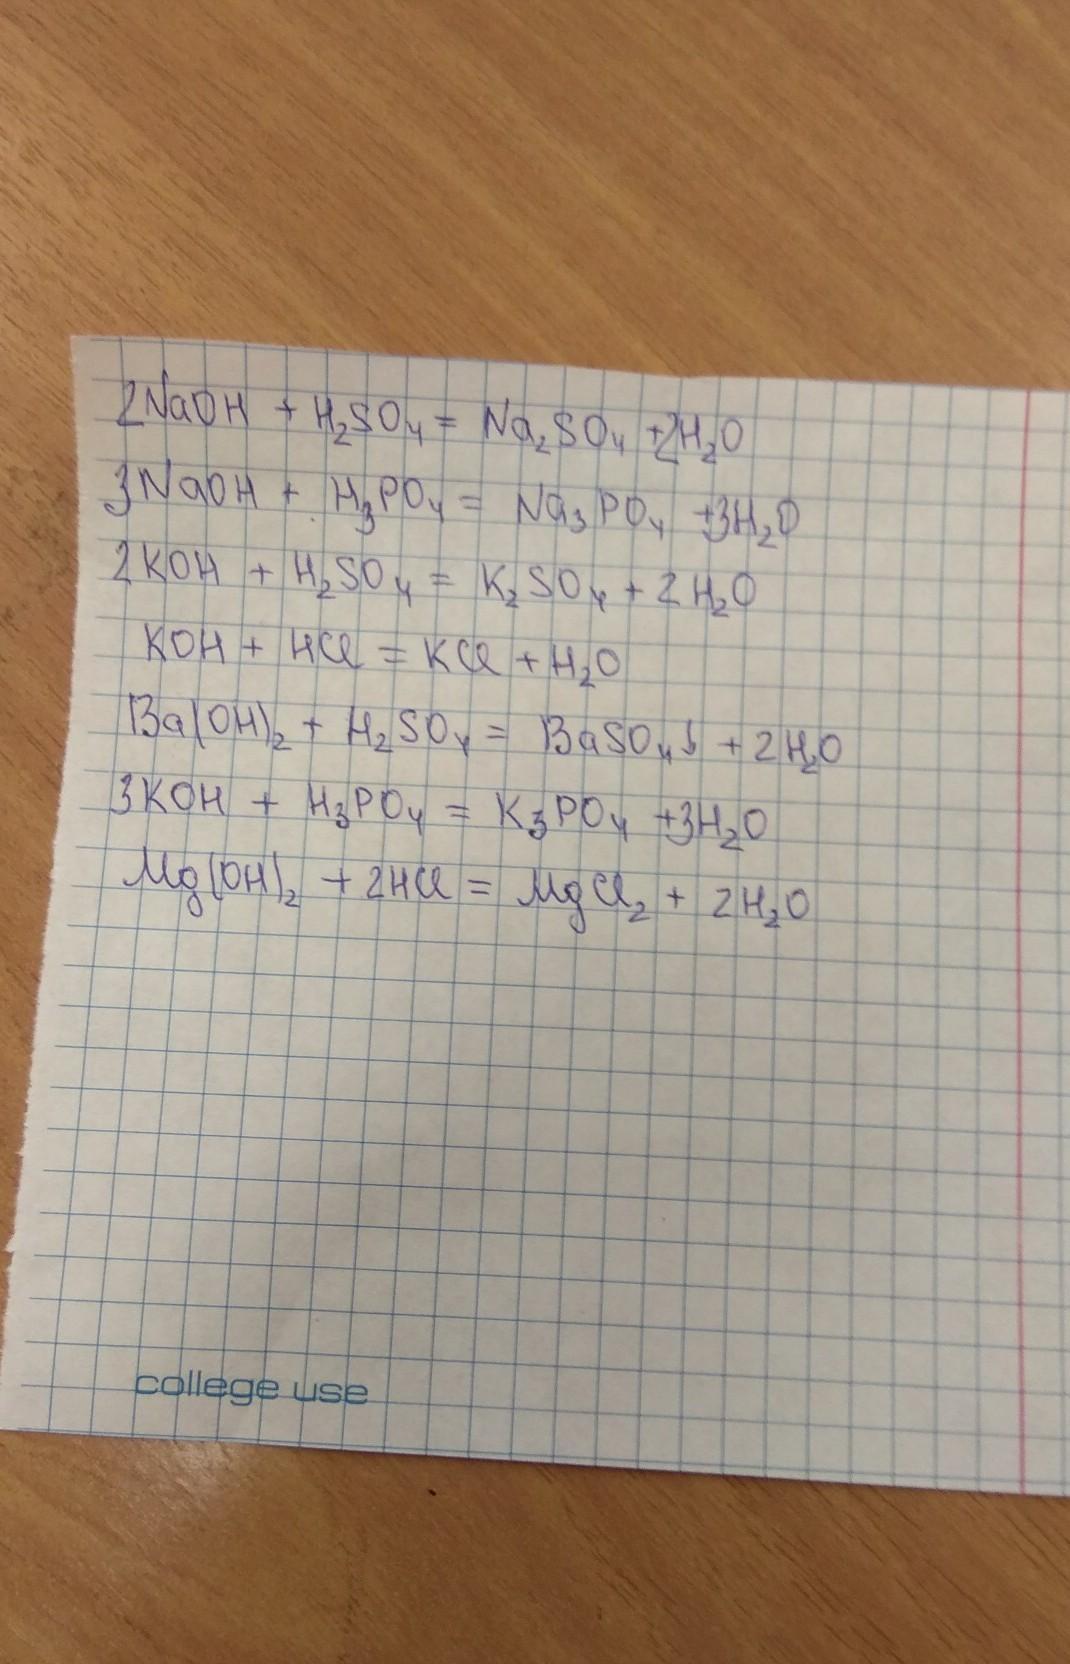 2NaOH + H₂SO₄ = Na₂SO₄ + 2H₂O
3NaOH + H₃PO₄ = Na₃PO₄ + 3H₂O
2KOH + H₂SO₄ = K₂SO₄ + 2H₂O
KOH + HCl = KCl + H₂O
Ba(OH)₂ + H₂SO₄ = BaSO₄↓ + 2H₂O
3KOH + H₃PO₄ = K₃PO₄ + 3H₂O
Mg(OH)₂ + 2HCl = MgCl₂ + 2H₂O
college use